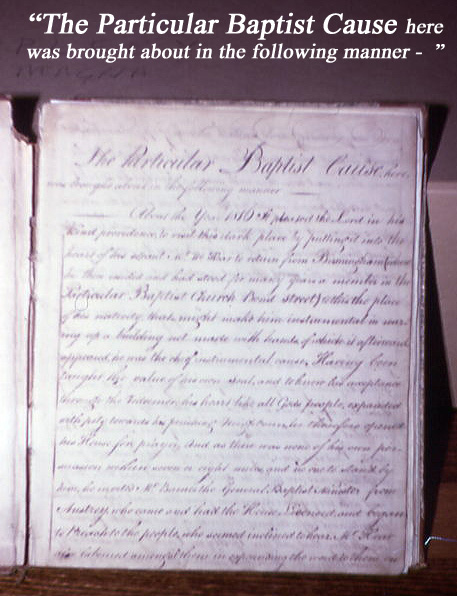 “The Particular Baptist Cause here
was brought about in the following manner - ”
The Particular Baptist Cause, here,
was brought about in the following manner
About the Year 1815 It pleased the Lord in his
kind providence to visit this dark place by putting it into the
heart of his servant Mr to return from Birmingham (where
he then resided and had stood for many years a member in the
Particular Baptist Church Bond Street) to this the place
of his nativity that might make him instrumental in
up a building not made with hands of which it afterwards
appeared, he was the chief instrumental cause. Having been
taught the value of his own soul, and to know his acceptance
through the Redeemer, his heart like all Gods people, expanded
with pity towards his he therefore opened
his House for prayer, And as there was none of his own per-
suasion within seven or eight miles and no one to stand by
him, he invited Mr Barnes the General Baptist Minister from
Austrey, who came and had the House Licenced, and began
to Preach to the people, who seemed inclined to hear. Mr
also laboured amongst them in expounding the word to them